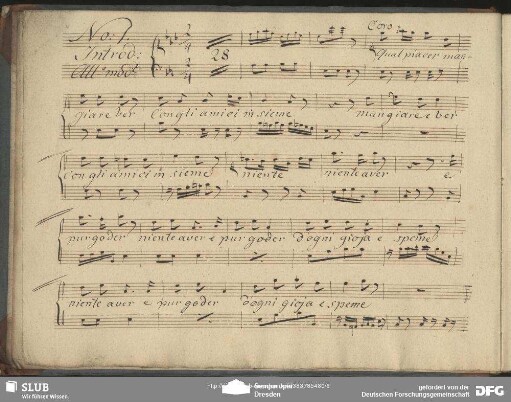 No. 1.
Coro:
Introd:
28
Qual piacer man-
All.º mod.to
giare e ber Con gli amici in sieme mangiare e ber
Con gli amici in sieme niente niente aver e
pur goder niente aver e pur goder d'ogni gioja e speme
niente aver e pur goder d'ogni gioja e speme
SLUB
Wir führen Wissen.
Semperoper
Dresden
gefördert von der
Deutschen Forschungsgemeinschaft
DFG